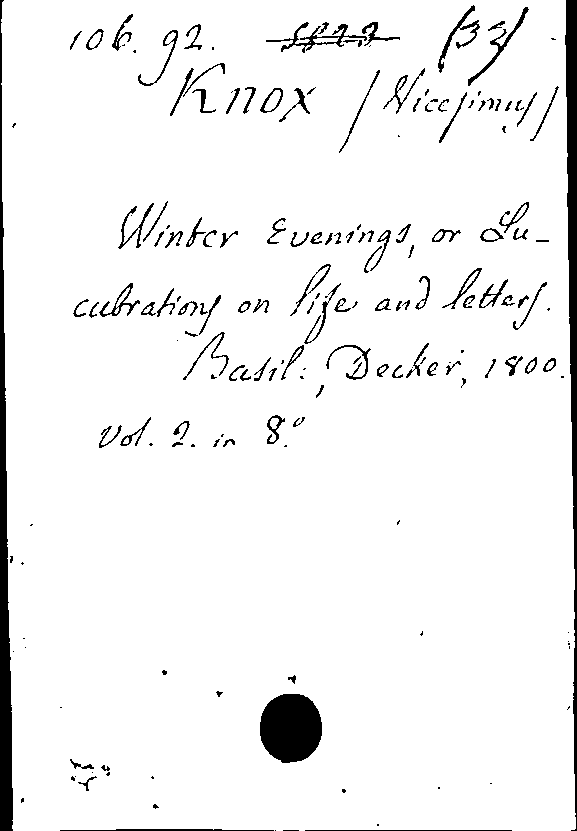 106. 92. 5823 (33)
Knox /Vicesimus/
Winter Evenings, or Lu-
cubrations on life and letters.
Basil:, Decker, 1800.
Vol. 2. in 8.º